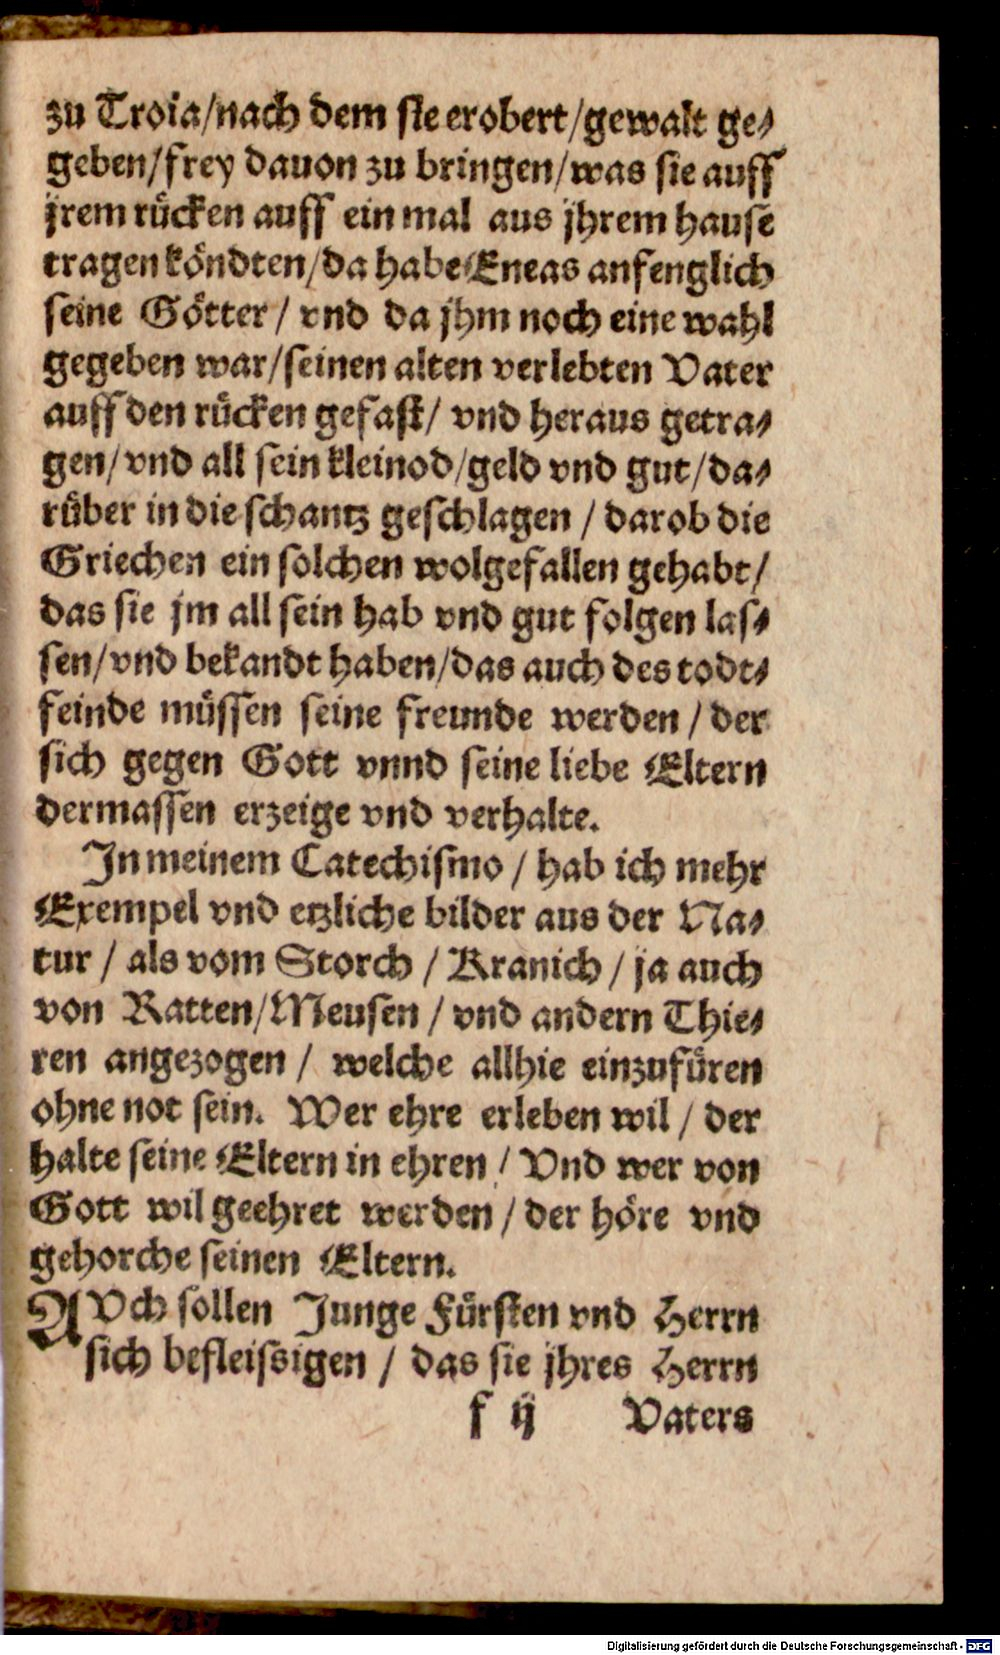 zu Troia/nach dem sie erobert/gewalt ge-
geben/frey dauon zu bringen/was sie auff
jrem rücken auff ein mal aus jhrem hause
tragen köndten/da habe Eneas anfenglich
seine Götter / vnd da jhm noch eine wahl
gegeben war/seinen alten verlebten Vater
auff den rücken gefast/ vnd heraus getra-
gen/vnd all sein kleinod/geld vnd gut/da-
rüber in die schantz geschlagen / darob die
Griechen ein solchen wolgefallen gehabt/
das sie jm all sein hab vnd gut folgen las-
sen/vnd bekandt haben/das auch des todt-
feinde müssen seine freunde werden / der
sich gegen Gott vnnd seine liebe Eltern
dermassen erzeige vnd verhalte.
In meinem Catechismo / hab ich mehr
Exempel vnd etzliche bilder aus der Na-
tur / als vom Storch / Kranich / ja auch
von Ratten/Meusen / vnd andern Thie-
ren angezogen / welche allhie einzufüren
ohne not sein. Wer ehre erleben wil / der
halte seine Eltern in ehren / Vnd wer von
Gott wil geehret werden / der höre vnd
gehorche seinen Eltern.
AVch sollen Junge Fürsten vnd Herrn
sich befleissigen / das sie jhres Herrn
f ij Vaters
Digitalisierung gefördert durch die Deutsche Forschungsgemeinschaft - DFG